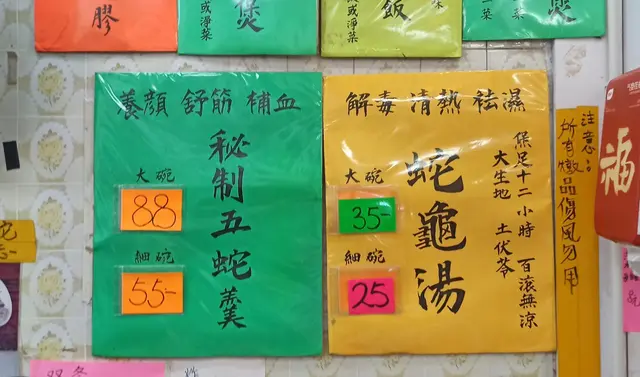 膠
煲
或淨菜
飯
或淨菜
養顏 舒筋 補血
秘制五蛇羹
大碗
88
細碗
55-
解毒 清熱 袪濕
保足十二小時 百滾無涼
大生地 土伏苓
蛇龜湯
大碗
35-
細碗
25
注意:。
所有燉品傷風勿用
福